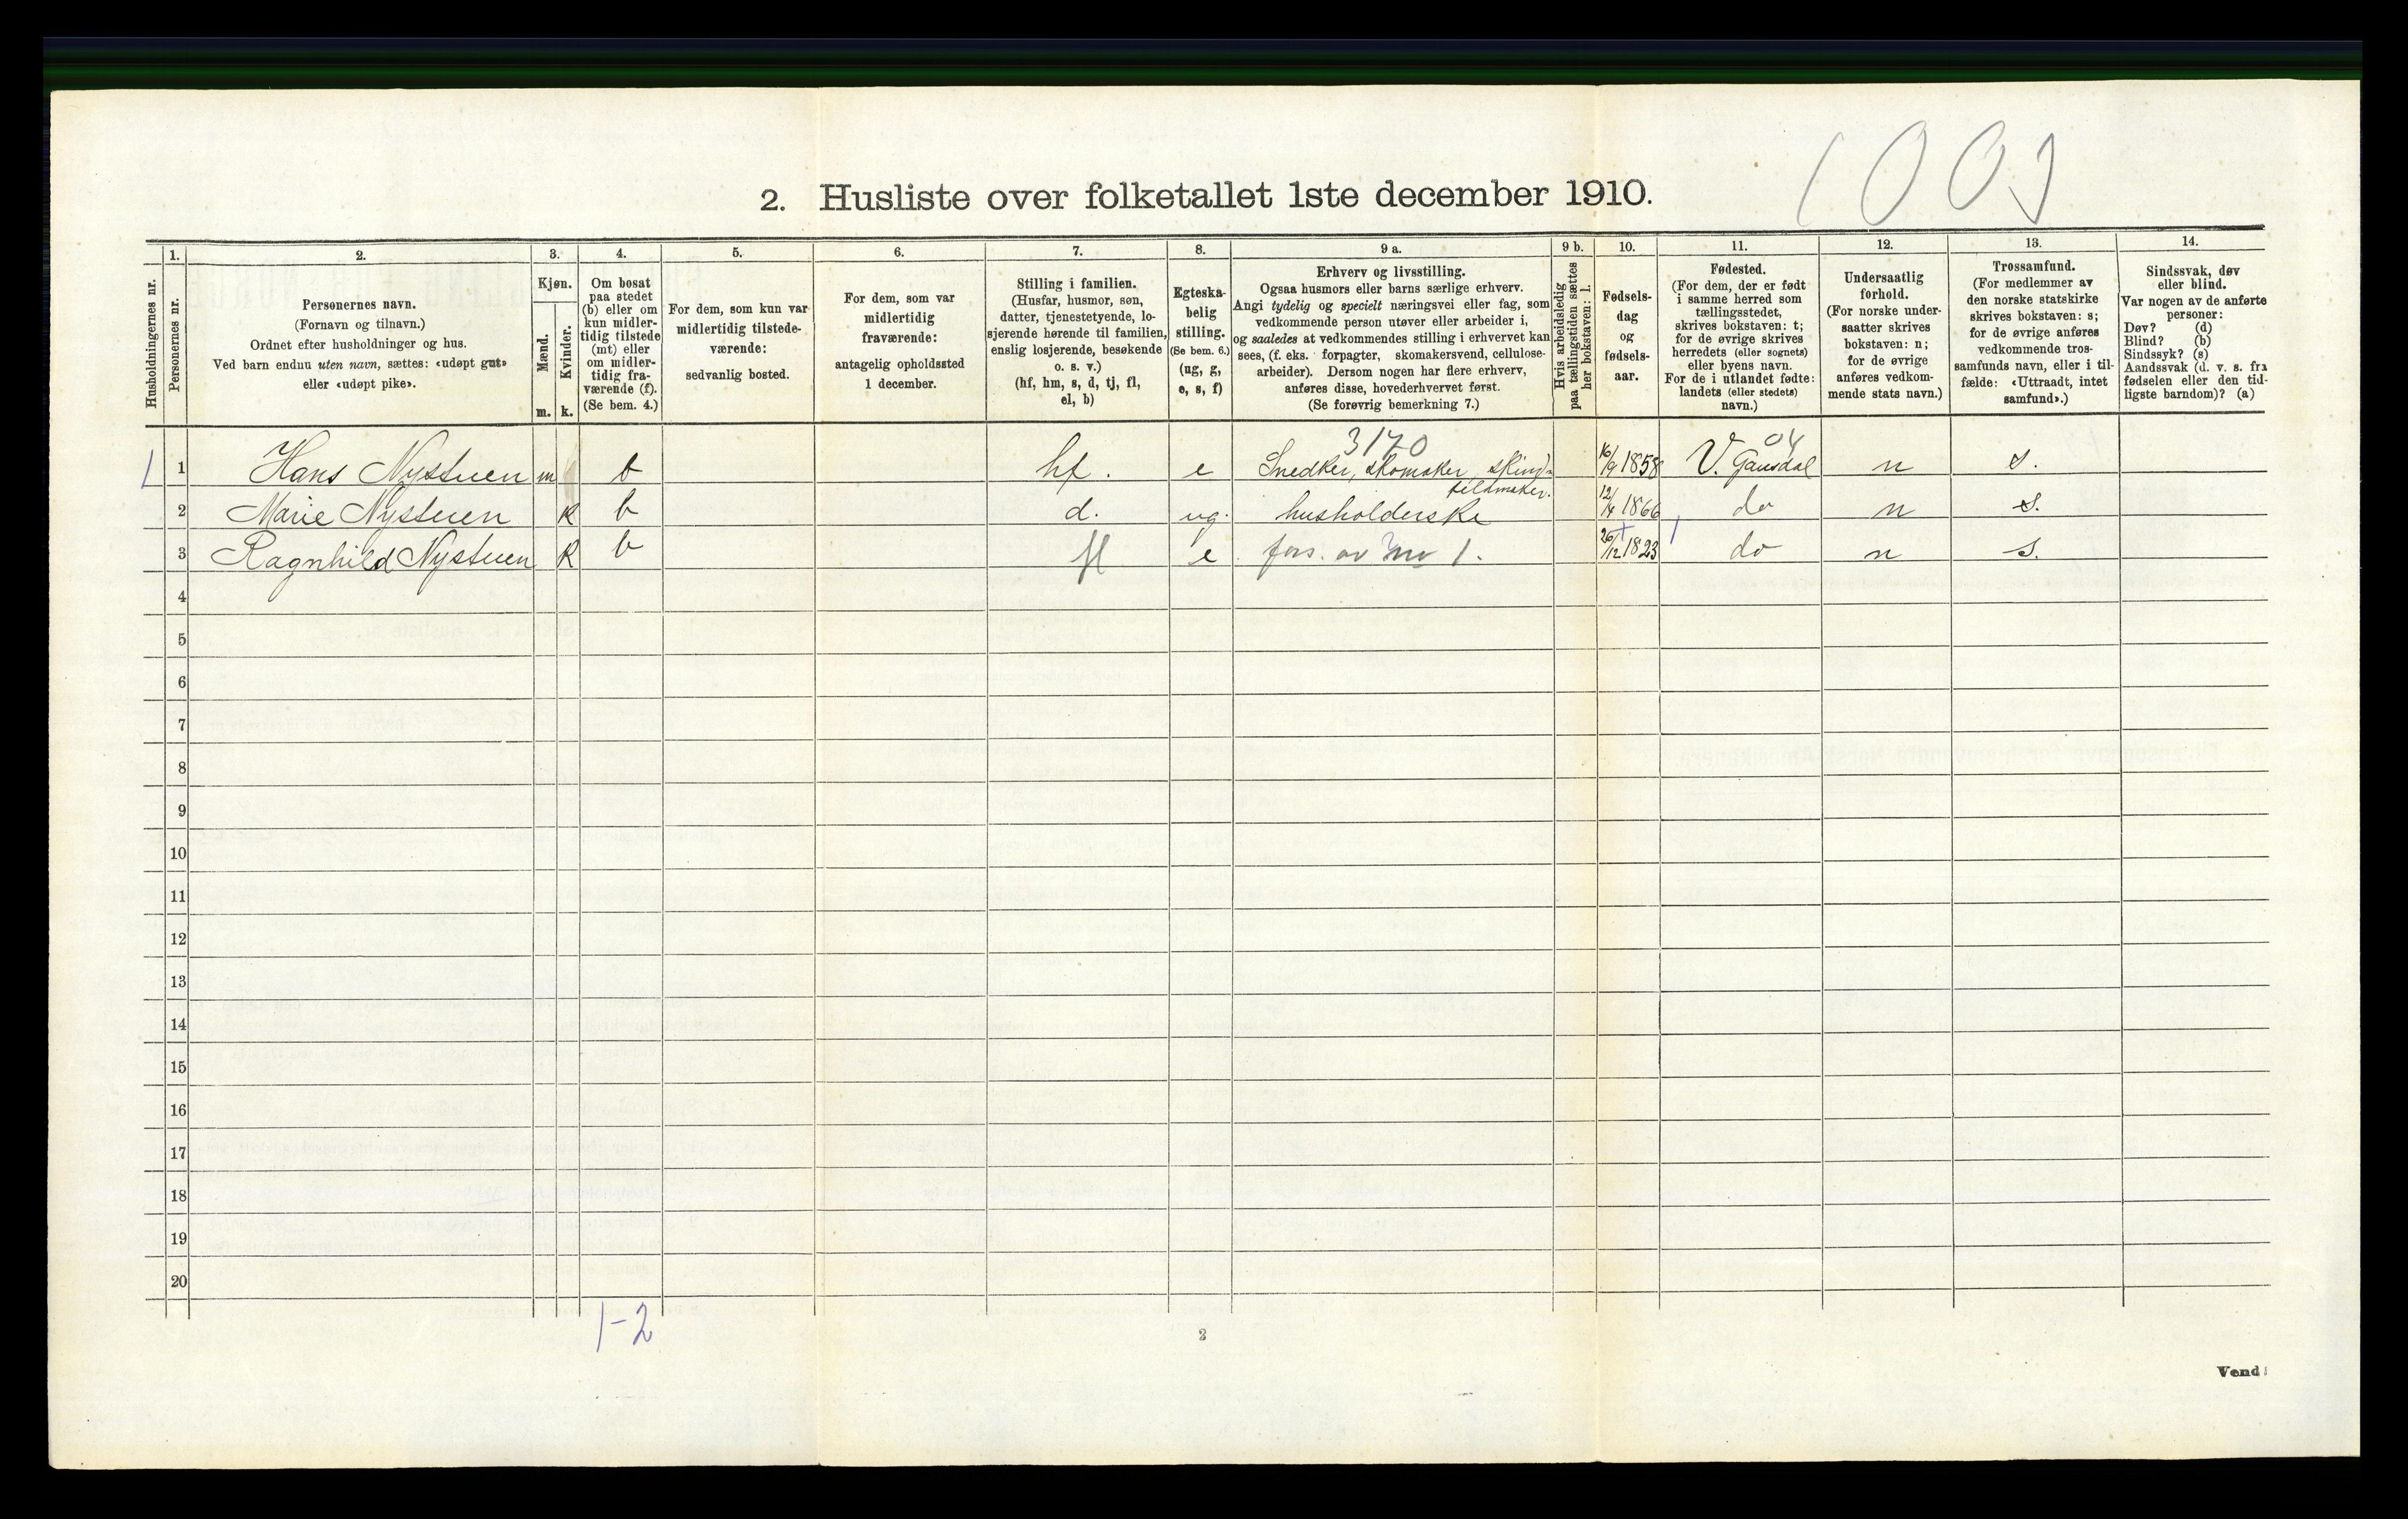 1 0 0 9
2. Husliste over folketallet 1ste december 1910.
Husholdningernes nr.
1.
Personernes nr.
2.
Personernes navn.
(Fornavn og tilnavn.)
Ordnet efter husholdninger og hus.
Ved barn endnu uten navn, sættes: «udøpt gut»
eller «udøpt pike».
3.
Kjøn.
Mænd.
m.
Kvinder.
k.
4.
Om bosat
paa stedet
(b) eller om
kun midler-
tidig tilstede
(mt) eller
om midler-
tidig fra-
værende (f).
(Se bem. 4.)
5.
For dem, som kun var
midlertidig tilstede-
værende:
sedvanlig bosted.
6.
For dem, som var
midlertidig
fraværende:
antagelig opholdssted
1 december.
7.
Stilling i familien.
(Husfar, husmor, søn,
datter, tjenestetyende, lo-
sjerende hørende til familien,
enslig losjerende, besøkende
o. s. v.)
(hf, hm, s, d, tj, fl,
el, b)
8.
Egteska-
belig
stilling.
(Se bem. 6.)
(ug, g,
e, s, f)
9 a.
Erhverv og livsstilling.
Ogsaa husmors eller barns særlige erhverv.
Angi tydelig og specielt næringsvei eller fag, som
vedkommende person utøver eller arbeider i,
og saaledes at vedkommendes stilling i erhvervet kan
sees, (f. eks. forpagter, skomakersvend, cellulose-
arbeider). Dersom nogen har flere erhverv,
anføres disse, hovederhvervet først.
(Se forøvrig bemerkning 7.)
9 b.
Hvis arbeidsledig
paa tællingstiden sættes
her bokstaven: l.
10.
Fødsels-
dag
og
fødsels-
aar.
11.
Fødested.
(For dem, der er født
i samme herred som
tællingsstedet,
skrives bokstaven: t;
for de øvrige skrives
herredets (eller sognets)
eller byens navn.
For de i utlandet fødte:
landets (eller stedets)
navn.)
12.
Undersaatlig
forhold.
(For norske under-
saatter skrives
bokstaven: n;
for de øvrige
anføres vedkom-
mende stats navn.)
13.
Trossamfund.
(For medlemmer av
den norske statskirke
skrives bokstaven: s;
for de øvrige anføres
vedkommende tros-
samfunds navn, eller i til-
fælde: «Uttraadt, intet
samfund».)
14.
Sindssvak, døv
eller blind.
Var nogen av de anførte
personer:
Døv? (d)
Blind? (b)
Sindssyk? (s)
Aandssvak (d. v. s. fra
fødselen eller den tid-
ligste barndom)? (a)
3170 04
1 1 Hans Nystuen m b hf. e Snedker, skomaker, skind- 16/9 1858 V. Gausdal n s.
feldmaker.
2 Marie Nystuen k b d. ug. husholderske 12/4 1866 do n s.
3 Ragnhild Nystuen k b fl e fors. av no 1. 26/12 1823 do n s.
4
5
6
7
8
9
10
11
12
13
14
15
16
17
18
19
20
1-2
2
Vend